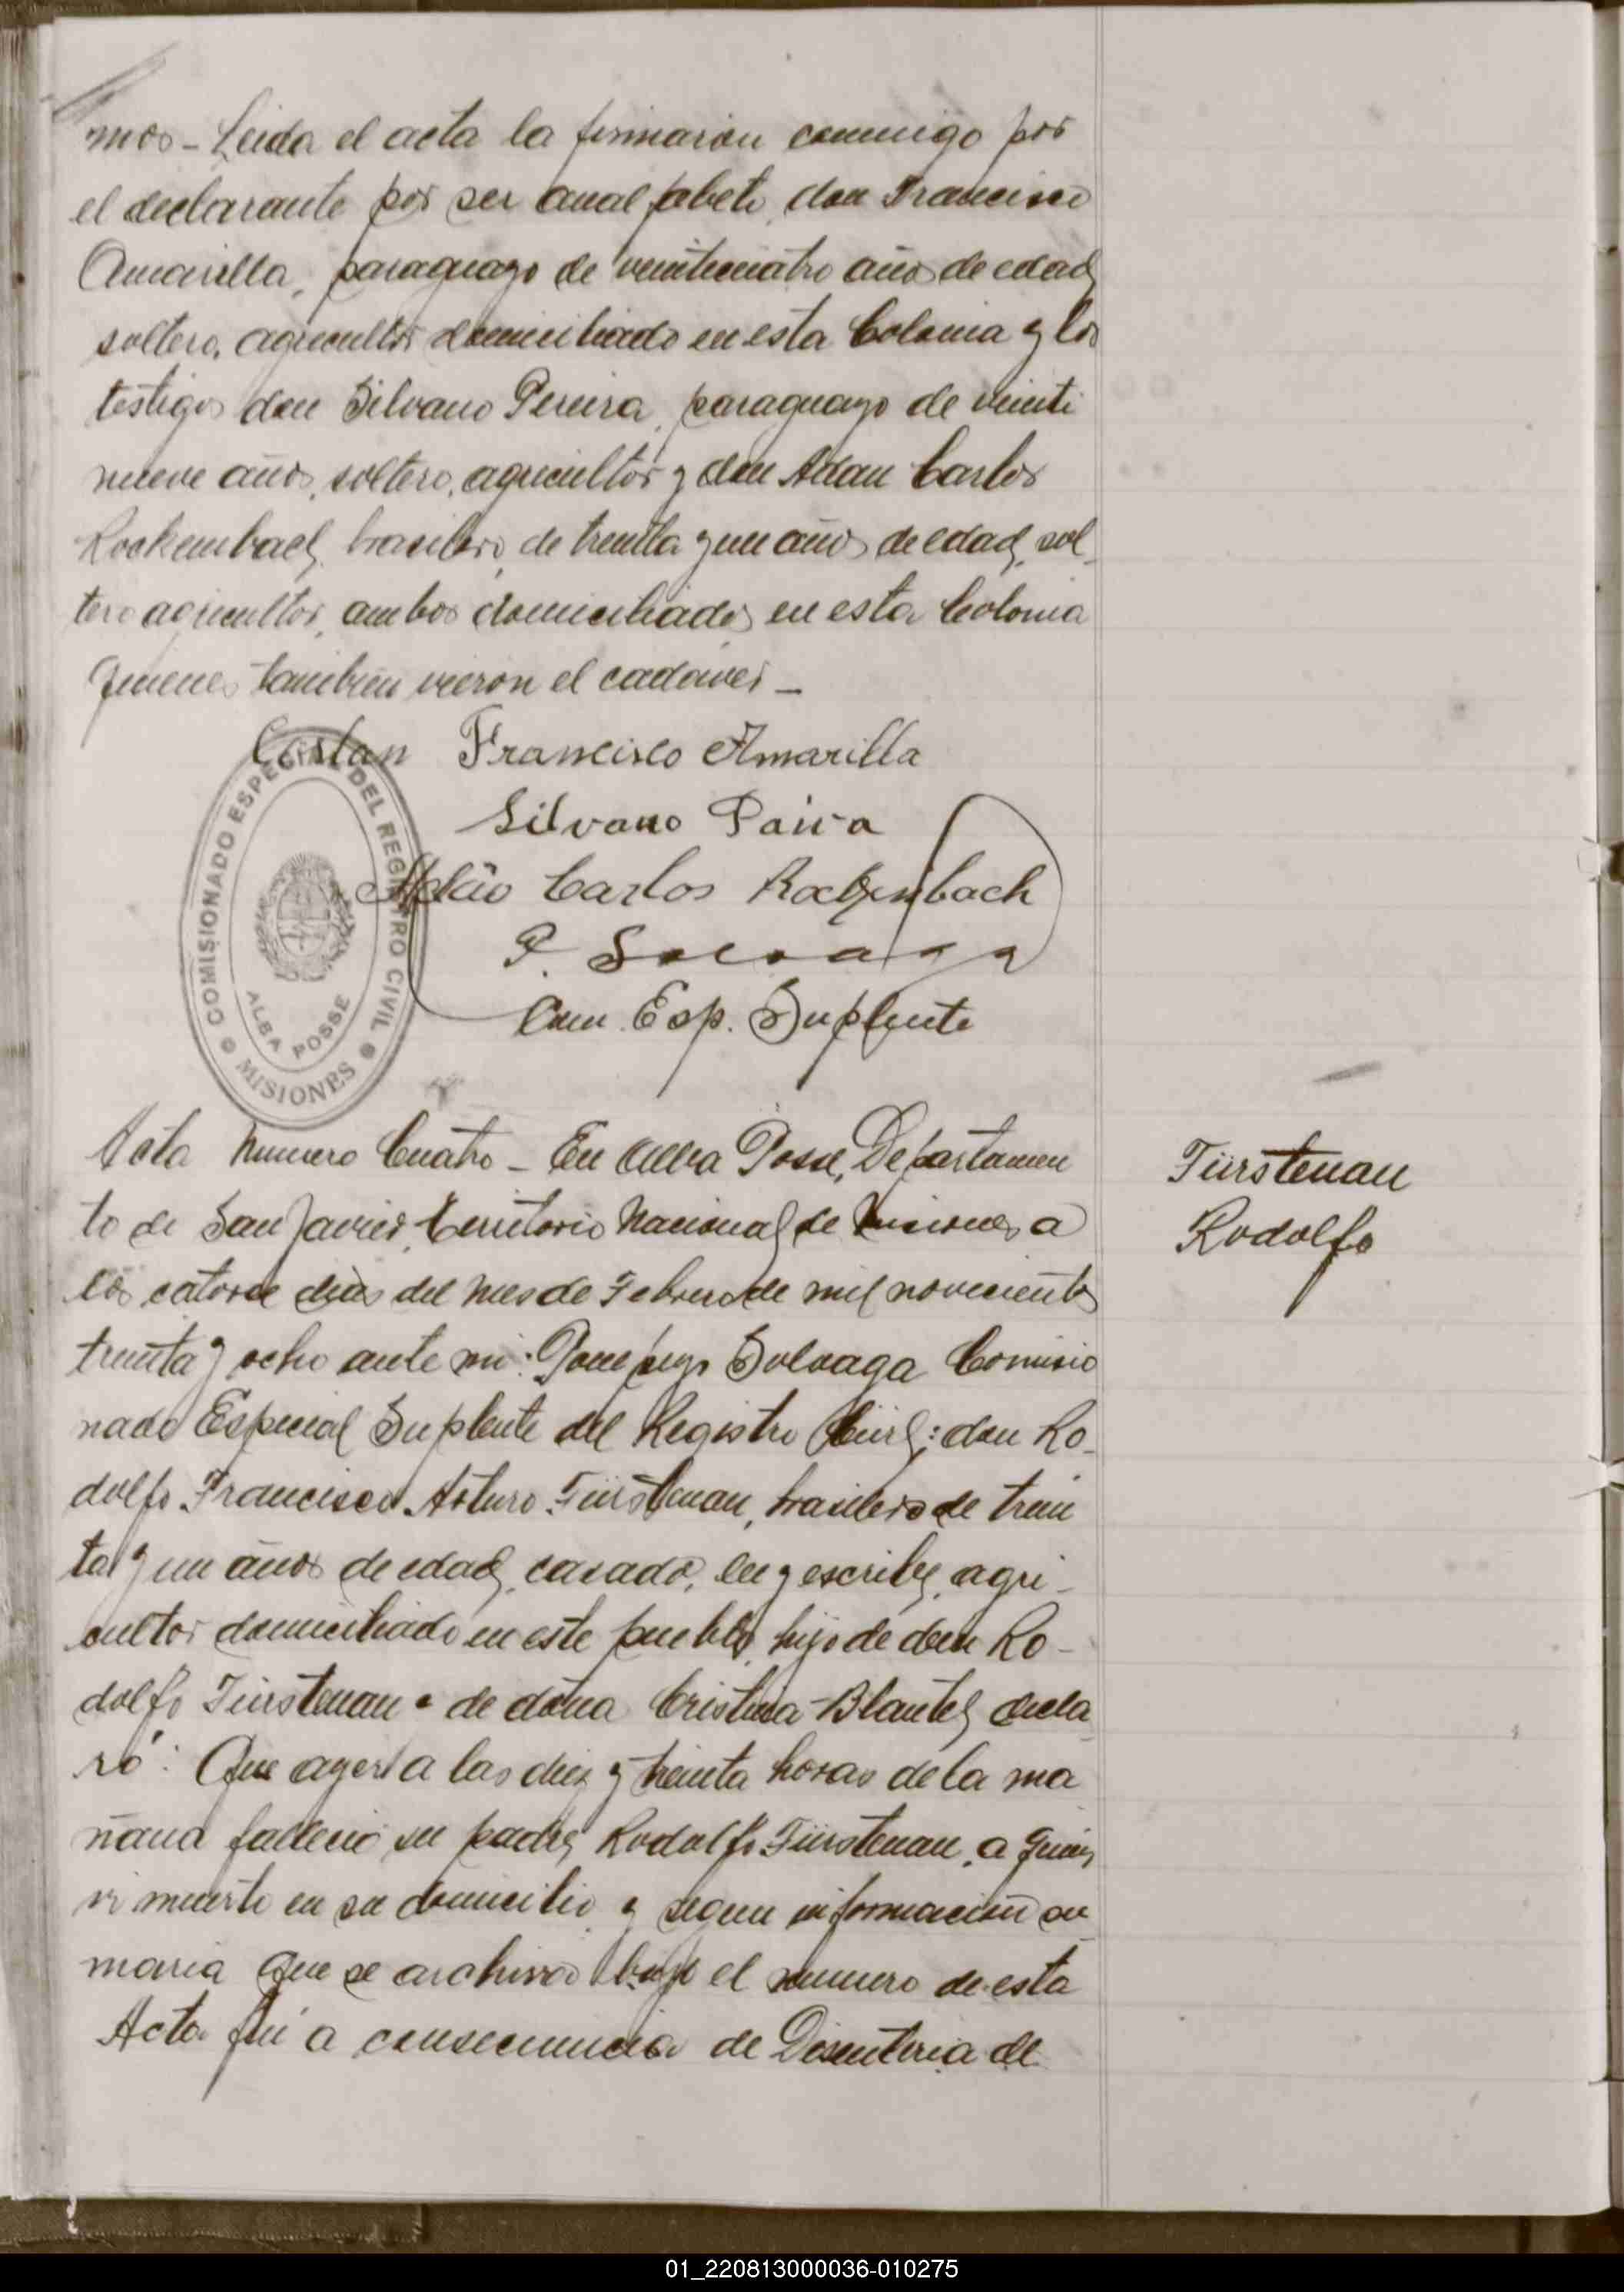 mos - Leida el acta la firmaron conmigo por
el declarante por ser analfabeto, don Francisco
Amarilla, paraguayo de veinticuatro años de edad,
soltero, agricultor domiciliado en esta Colonia y los
testigos don Silvano Pereira, paraguayo de veinti
nueve años, soltero, agricultor y don Adan Carlos
Rockembach, brasilero, de treinta y un años de edad, sol-
tero agricultor, ambos domiciliados en esta Colonia
quienes tambien vieron el cadaver -
Costan Francisco Amarilla
Silvano Paiva
Adão Carlos Rockenbach
P. Solvaga
Com. Esp. Suplente
COMISIONADO ESPECIAL DEL REGISTRO CIVIL
ALBA POSSE
MISIONES
Acta Numero Cuatro - En Alba Posse, Departamen
to de San Javier, Territorio Nacional de Misiones, a
los catorce dias del mes de Febrero de mil novecientos
treinta y ocho ante mi: Pompeyo Solvaga Comisio
nado Especial Suplente del Registro Civil; don Ro-
dolfo Francisco Arturo Fürstenau, brasilero de trein
ta y un años de edad, casado, lee y escribe, agri-
cultor domiciliado en este pueblo, hijo de don Ro-
dolfo Fürstenau de doña Cristina Blantel, decla
ró: Que ayer a las diez y treinta horas de la ma
ñana fallecio su padre, Rodolfo Fürstenau, a quien
vi muerto en su domicilio y segun informacion su
maria que se archiva bajo el numero de esta
Acta fué a consecuencia de Disenteria de
Fürstenau
Rodolfo
01_220813000036-010275